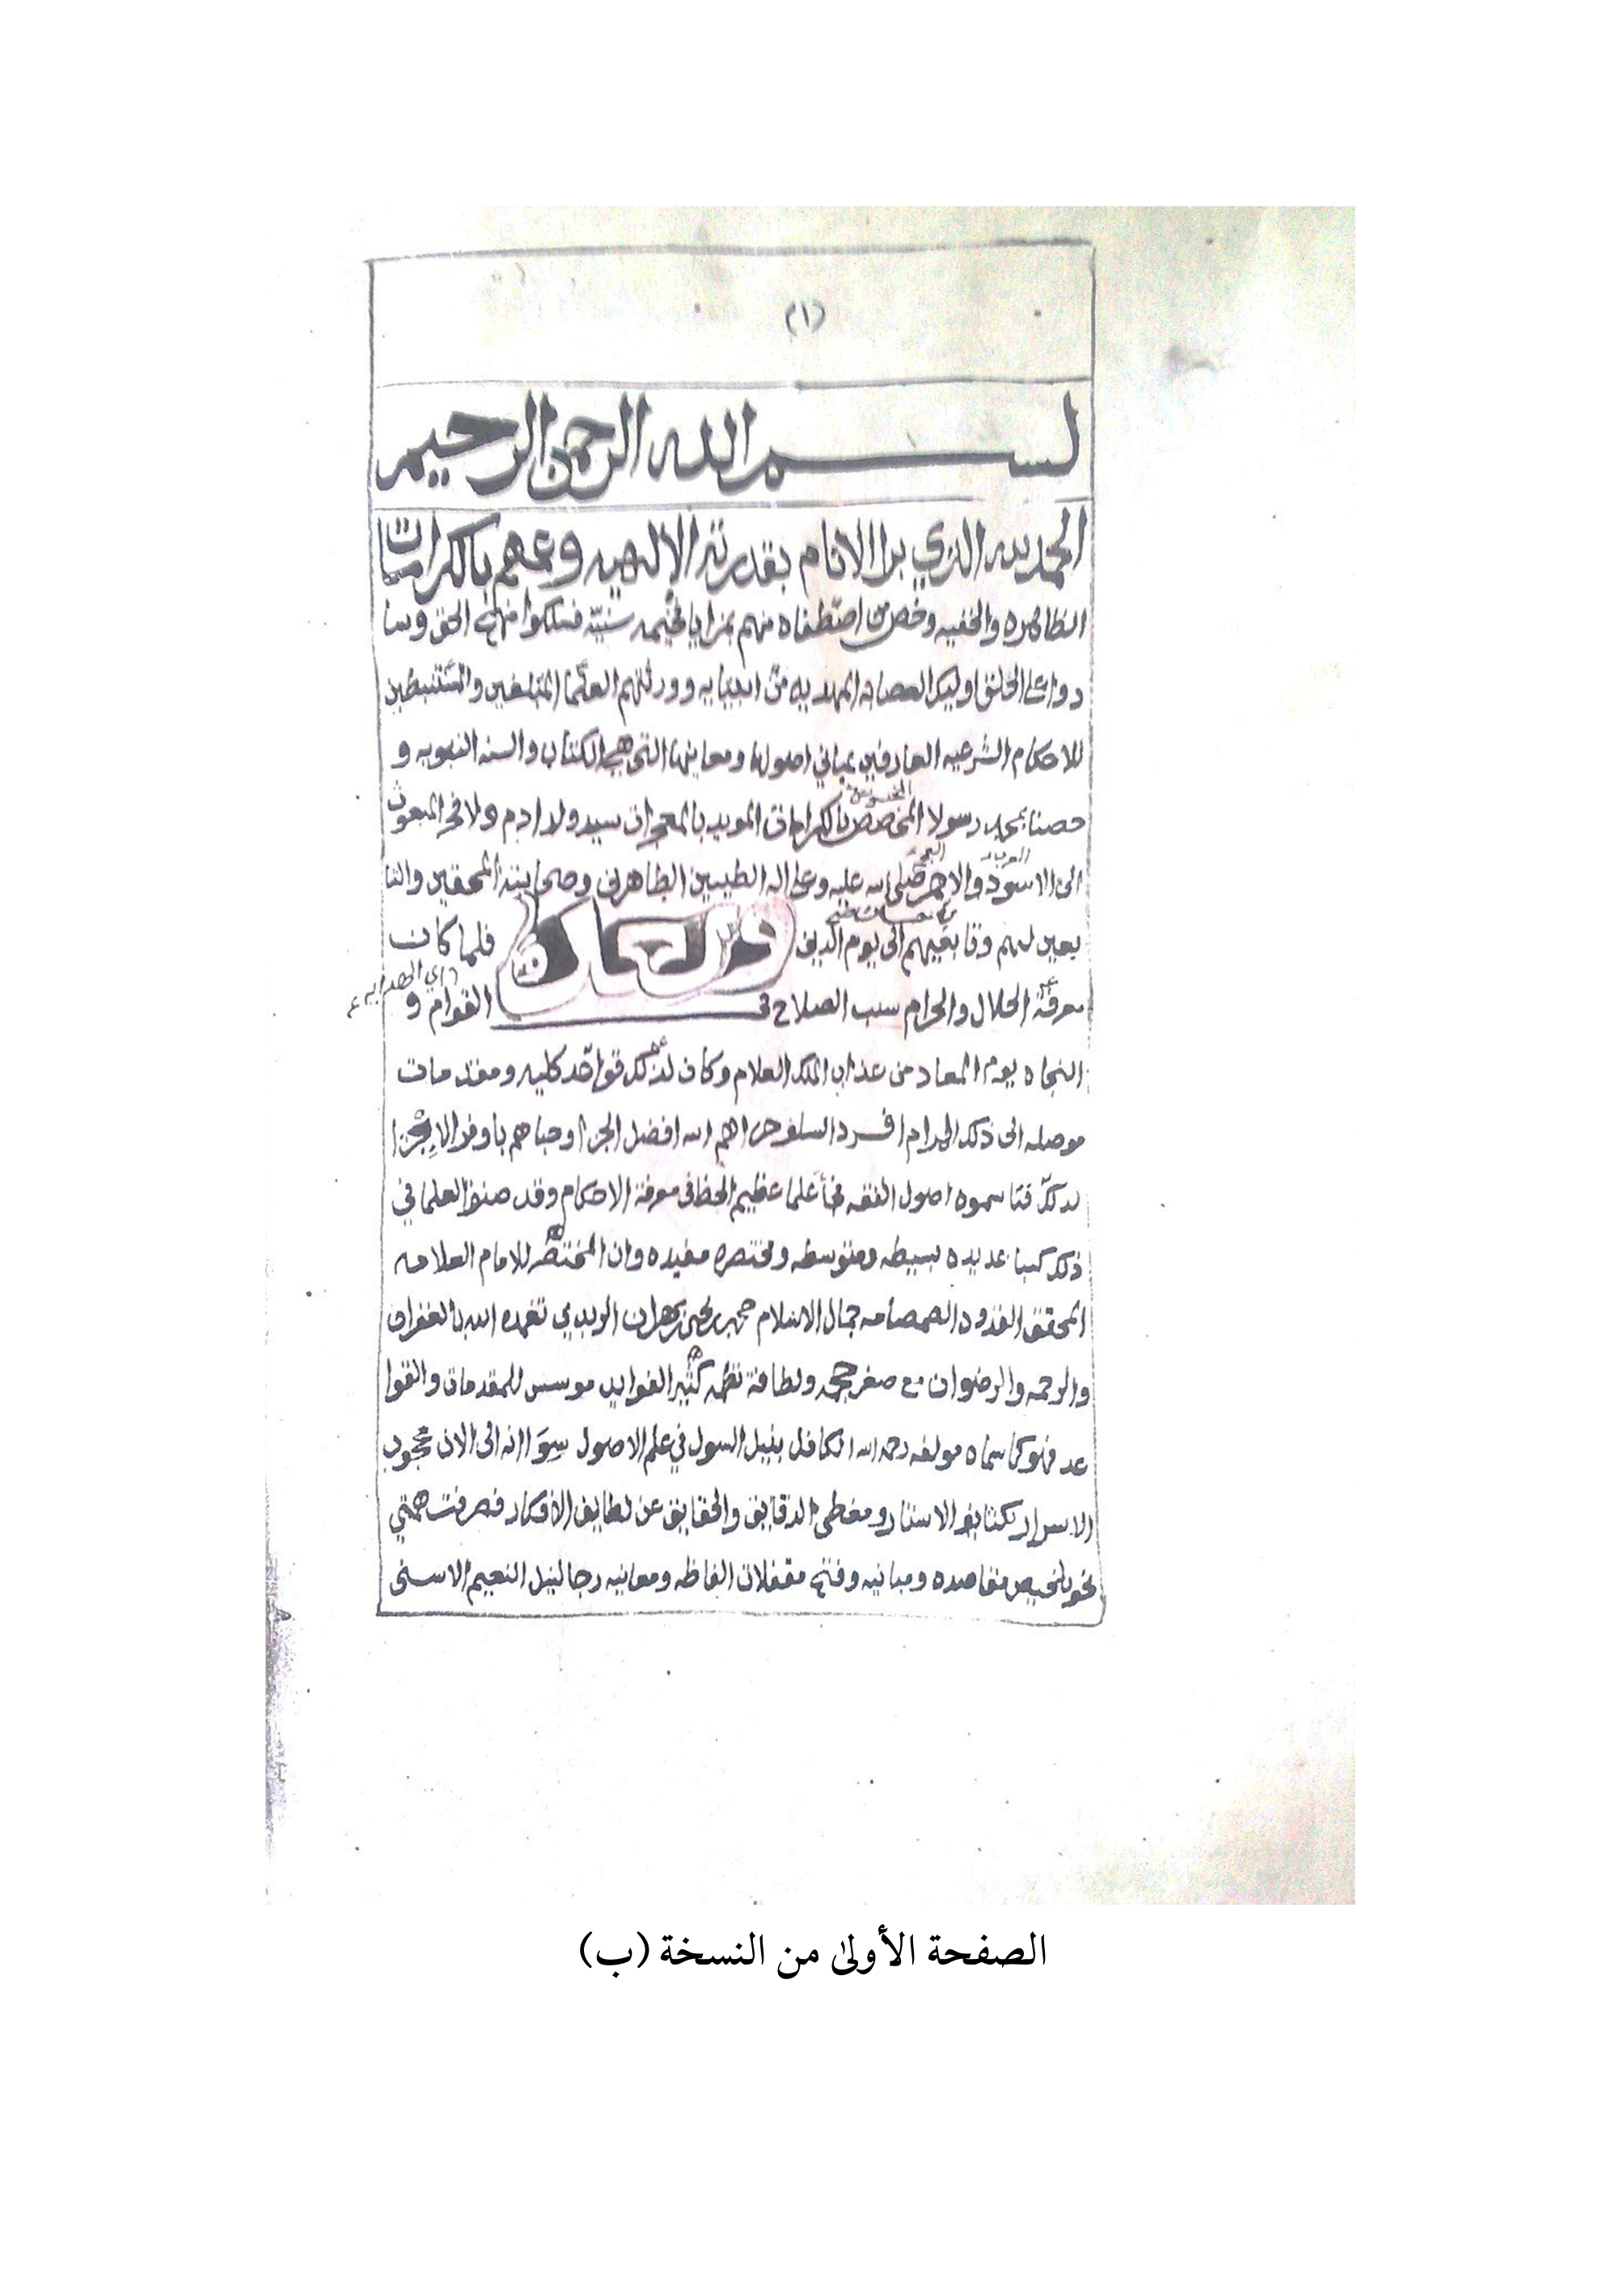 (١)
بسم الله الرحمن الرحيم
الحمد لله الذي برا الانام بقدرته الإلهيه وعمهم بالكرامات
الظاهره والخفيه وخص من اصطفاه منهم بمزايا سنيّة فسلكوا منهج الحق وسا
دوا على الخلق اوليك العصابه المهديه من انبيايه وورثتهم العلما المتقين والمستنبطين
للاحكام الشرعيه العارفين بمباني اصولها ومعانيها التي هي الكتاب والسنه النبويه و
خصنا بمحمد رسولا المخصص بالكرامات المويد بالمعجزات سيد ولد ادم ولا فخر المبعوث
الى الاسود والاحمر صلى الله عليه وعلى اله الطيبين الطاهرين وصحابته المحقين والتا
بعين لهم وتابعيهم الى يوم الدين وبعد فلما كان
معرفة الحلال والحرام سبب الصلاح في القوام و
النجاه يوم المعاد من عذاب الملك العلام وكان لذلك قواعد كليه ومقدمات
موصله الى ذلك المرام افرد السلف جزاهم الله افضل الجزا وحباهم باوفر الاجزا
لذلك فنا سموه اصول الفقه فجا علما عظيم الحظ في معرفة الاحكام وقد صنف العلما في
ذلك كتبا عديده بسيطه ومتوسطه ومختصره مفيده وان المختصر للامام العلامه
المحقق الصمصامه جمال الاسلام محمد بن يحيى بهران تغمده الله بالغفران
والرحمه والرضوان مع صغر حجمه ولطافة نظمه كثير الفوايد موسس للمقدمات والقوا
عد فهو كما سماه مولفه رحمه الله الكافل بنيل السول في علم الاصول سوا انه الى الان محجوب
الاسرار بكثايف الاستار ومغطى الدقايق والحقايق عن لطايف الافكار فصرفت همتي
نحو تلخيص مقاصده ومبانيه وفتح مقفلات الفاظه ومعانيه رجا لنيل النعيم الاسنى
الصفحة الأولىٰ من النسخة (ب)